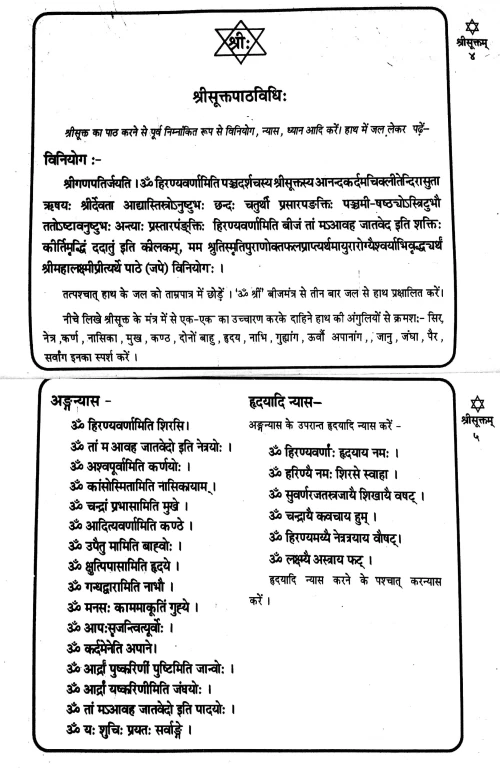 श्रीः
श्रीसूक्तम्
४
श्रीसूक्तपाठविधिः
श्रीसूक्त का पाठ करने से पूर्व निम्नांकित रूप से विनियोग, न्यास, ध्यान आदि करें। हाथ में जल लेकर पढ़ें–
विनियोग :–
श्रीगणपतिर्जयति। ॐ हिरण्यवर्णामिति पञ्चदर्शचस्य श्रीसूक्तस्य आनन्दकर्दमचिक्लीतेन्दिरासुता
ऋषयः श्रीर्देवता आद्यास्तिस्रोऽनुष्टुभः छन्दः चतुर्थी प्रसारपङक्तिः पञ्चमी-षष्ठ्योऽस्त्रिटुभौ
ततोऽष्टावनुष्टुभः अन्त्याः प्रस्तारपंङ्क्तिः हिरण्यवर्णामिति बीजं तां मऽआवह जातवेद इति शक्तिः
कीर्तिमृद्धिं ददातु इति कीलकम्, मम श्रुतिस्मृतिपुराणोक्तफलप्राप्त्यर्थमायुरारोग्यैश्वर्याभिवृद्ध्यर्थं
श्रीमहालक्ष्मीप्रीत्यर्थे पाठे (जपे) विनियोगः ।
तत्पश्चात् हाथ के जल को ताम्रपात्र में छोड़ें । 'ॐ श्रीं' बीजमंत्र से तीन बार जल से हाथ प्रक्षालित करें।
नीचे लिखे श्रीसूक्त के मंत्र में से एक-एक का उच्चारण करके दाहिने हाथ की अंगुलियों से क्रमशः:– सिर,
नेत्र ,कर्ण , नासिका , मुख , कण्ठ , दोनों बाहु , हृदय , नाभि , गुह्यांग , ऊर्वो अपानांग , , जानु , जंघा , पैर ,
सर्वांग इनका स्पर्श करें ।
श्रीसूक्तम्
५
अङ्गन्यास –
ॐ हिरण्यवर्णामिति शिरसि।
ॐ तां म आवह जातवेदो इति नेत्रयोः ।
ॐ अश्वपूर्वामिति कर्णयोः ।
ॐ कांसोस्मितामिति नासिकायाम्।
ॐ चन्द्रां प्रभासामिति मुखे ।
ॐ आदित्यवर्णामिति कण्ठे ।
ॐ उपैतु मामिति बाह्वोः ।
ॐ क्षुत्पिपासामिति हृदये ।
ॐ गन्धद्वारामिति नाभौ ।
ॐ मनसः काममाकूतिं गुह्ये ।
ॐ आपःसृजन्त्वित्यूर्वोः ।
ॐ कर्दमेनेति अपाने।
ॐ आर्द्रां पुष्करिणीं पुष्टिमिति जान्वोः ।
ॐ आर्द्रां यष्करिणीमिति जंघयोः ।
ॐ तां मऽआवह जातवेदो इति पादयोः ।
ॐ यः शुचिः प्रयतः सर्वाङ्गे ।
हृदयादि न्यास–
अङ्गन्यास के उपरान्त हृदयादि न्यास करें –
ॐ हिरण्यवर्णाः हृदयाय नमः ।
ॐ हरिण्यै नमः शिरसे स्वाहा ।
ॐ सुवर्णरजतस्त्रजायै शिखायै वषट् ।
ॐ चन्द्रायै कवचाय हुम् ।
ॐ हिरण्मय्यै नेत्रत्रयाय वौषट्।
ॐ लक्ष्म्यै अस्त्राय फट् ।
हृदयादि न्यास करने के पश्चात् करन्यास
करें ।